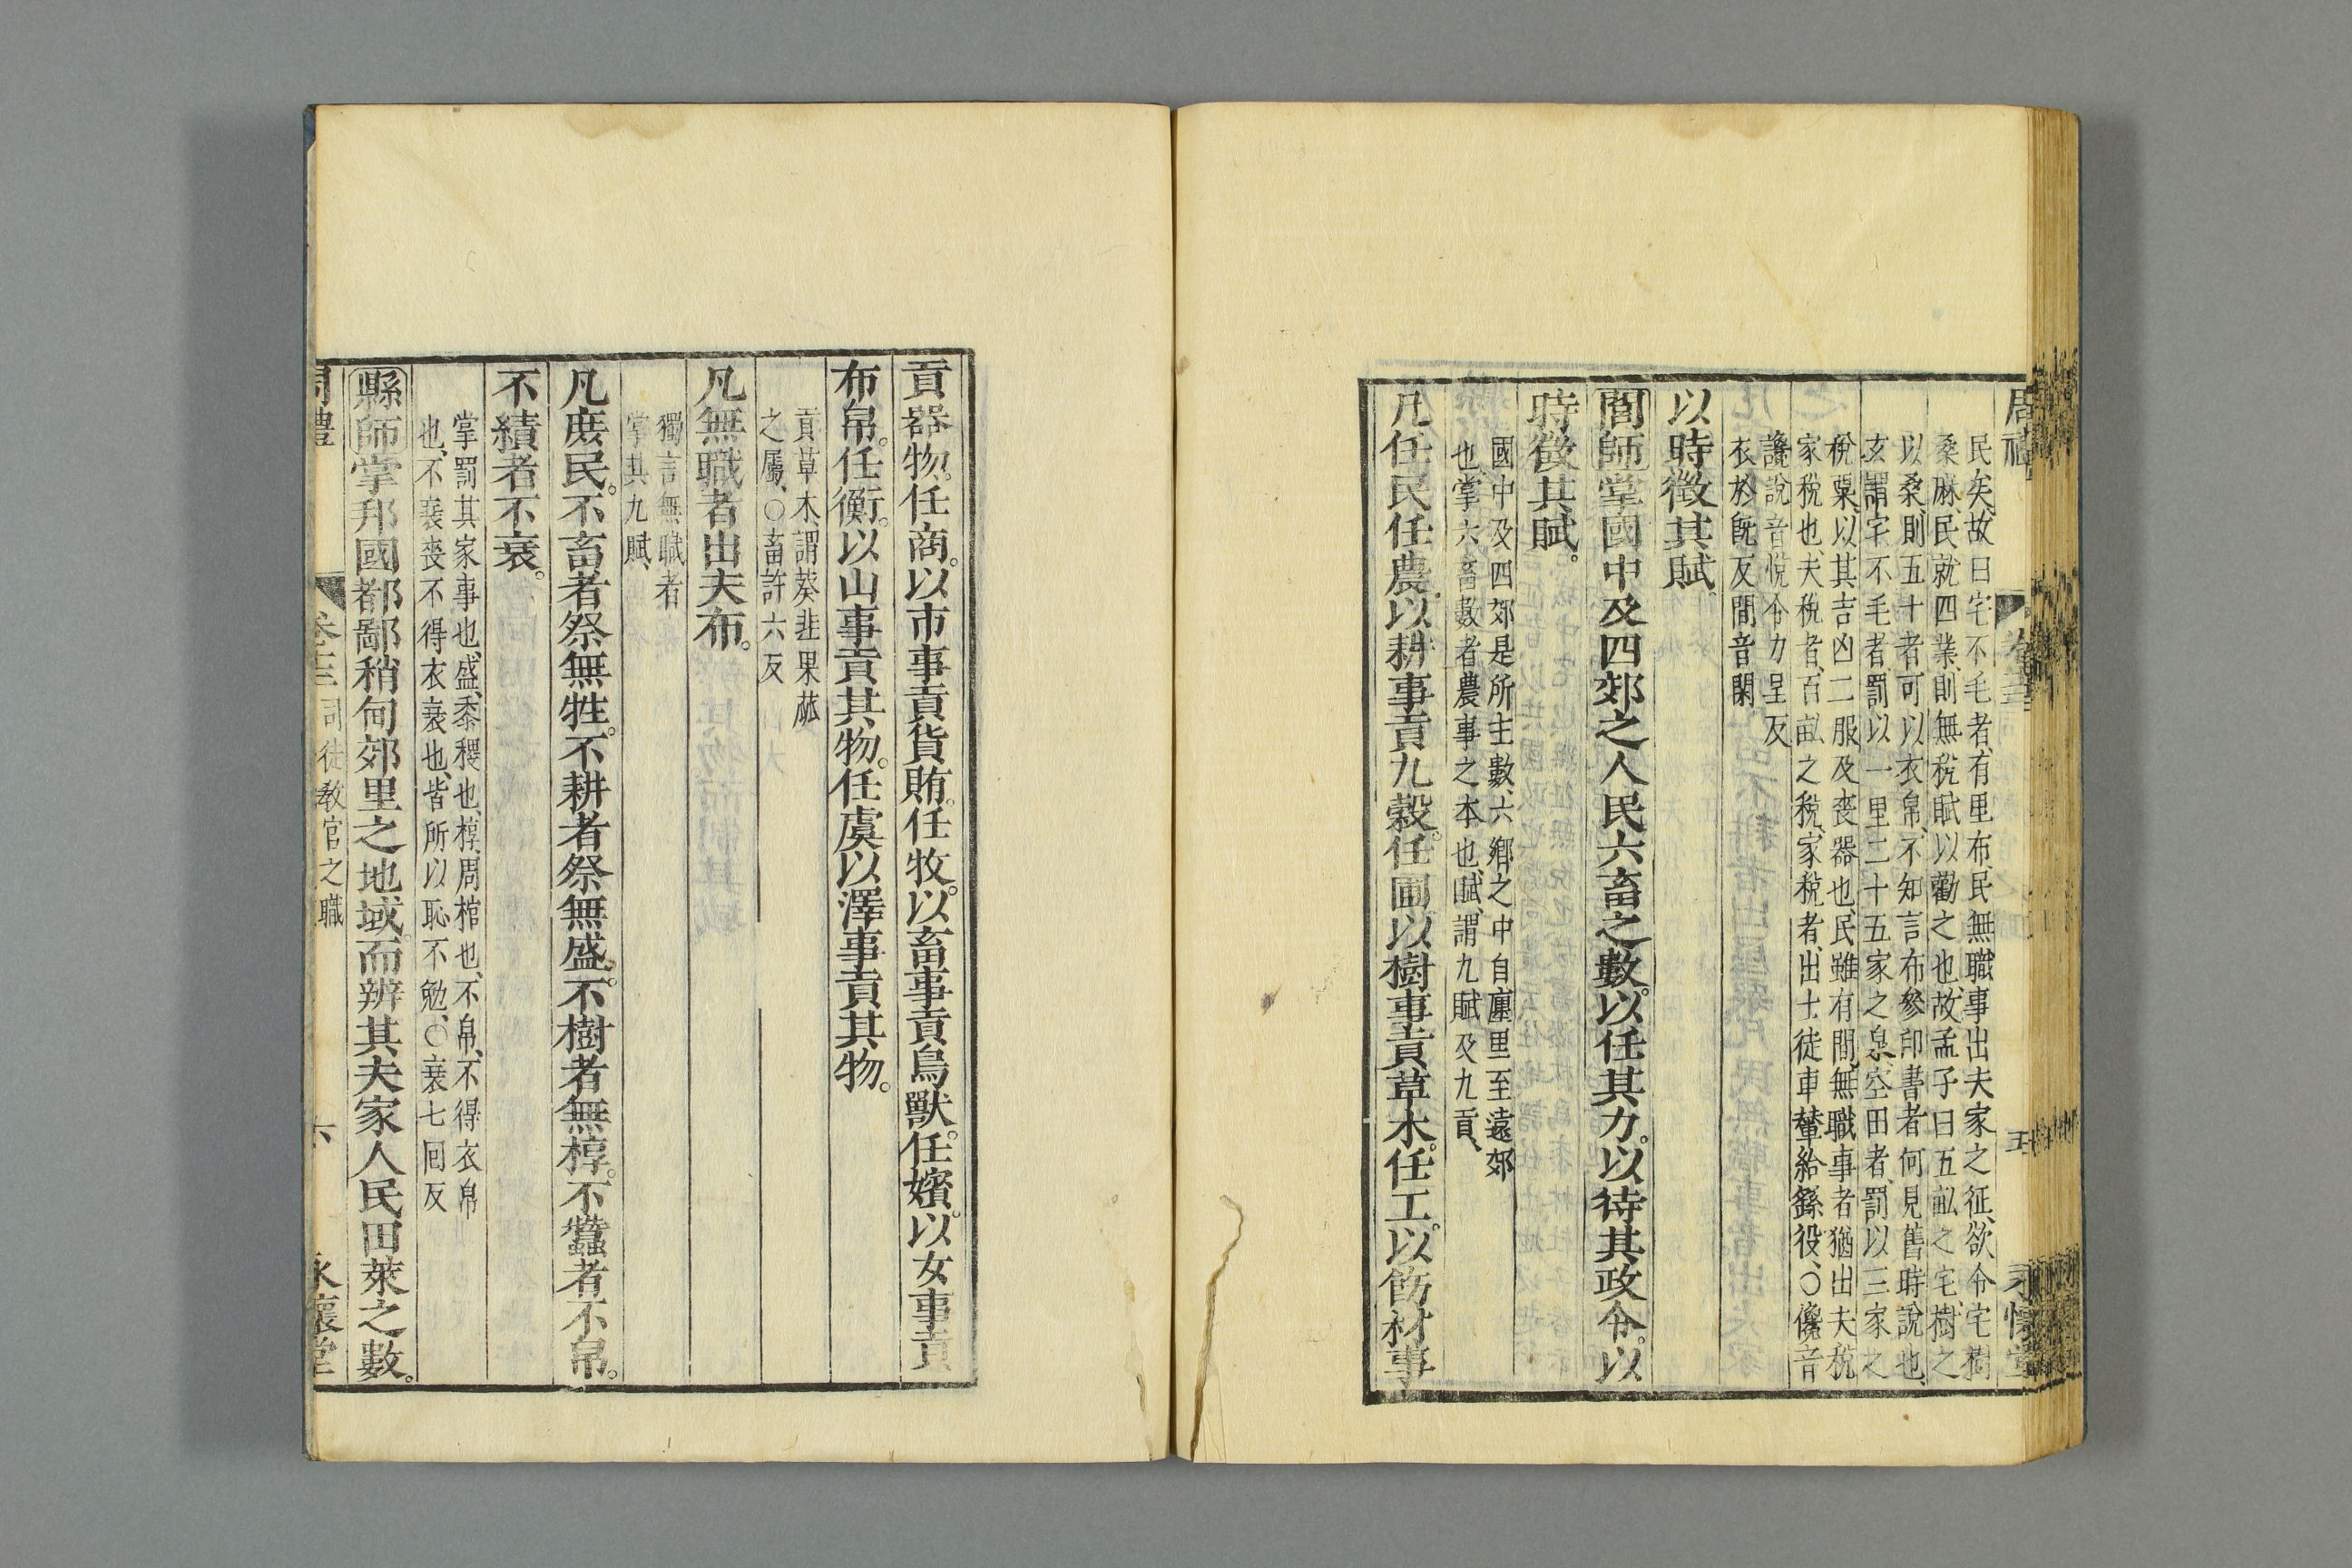 周禮 卷三 五 永懷堂
民矣、故曰宅不毛者、有里布、民無職事出夫家之征、欲令宅樹
桑麻、民就四業、則無稅賦以勸之也、故孟子曰五畝之宅、樹之
以桑、則五十者可以衣帛、不知言布參印書者何見舊時說也、
玄謂宅不毛者、罰以一里二十五家之泉、空田者、罰以三家之
稅粟、以其吉凶二服及喪器也、民雖有閒、無職事者猶出夫稅
家稅也、夫稅者、百畝之稅、家稅者、出士徒車輦給繇役、○儳音
讒說音悅令力呈反
衣於旣反閒音閑
以時徵其賦
閭師掌國中及四郊之人民六畜之數。以任其力。以待其政令。以
時徵其賦。
國中及四郊是所主數、六鄉之中自廛里至遠郊
也、掌六畜數者農事之本也、賦、謂九賦及九貢、
凡任民任農。以耕事貢九穀。任圃以樹事貢草木。任工。以飭材事
貢器物。任商。以市事貢貨賄。任牧。以畜事貢鳥獸。任嬪。以女事貢
布帛。任衡。以山事貢其物。任虞以澤事貢其物。
貢草木、謂葵韭果蓏
之屬、○畜許六反
凡無職者出夫布。
獨言無職者
掌其九賦、
凡庶民。不畜者祭無牲。不耕者祭無盛。不樹者無椁。不蠶者不帛。
不績者不衰。
掌罰其家事也、盛、黍稷也、椁、周棺也、不帛、不得衣帛
也、不衰喪不得衣衰也、皆所以恥不勉、○衰七回反
縣師掌邦國都鄙稍甸郊里之地域。而辨其夫家人民田萊之數。
周禮 卷三 司徒敎官之職 六 永懷堂